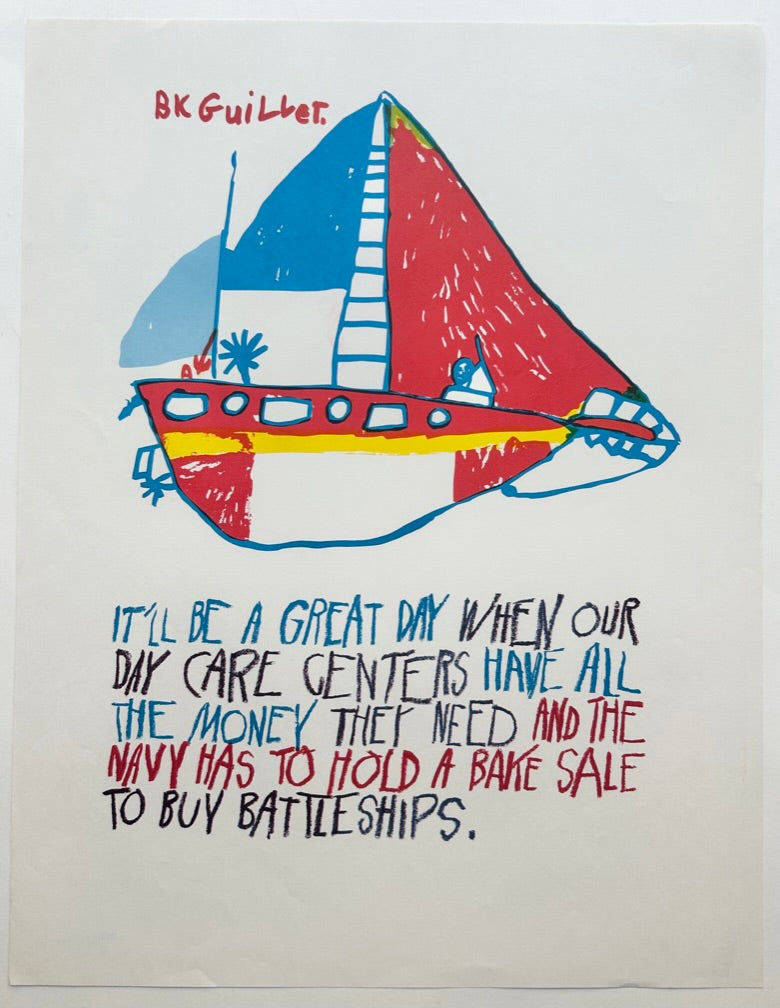 BK Guiller.
IT'LL BE A GREAT DAY WHEN OUR
DAY CARE CENTERS HAVE ALL
THE MONEY THEY NEED AND THE
NAVY HAS TO HOLD A BAKE SALE
TO BUY BATTLESHIPS.